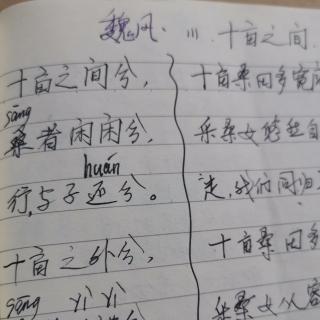 魏风·111.十亩之间
十亩之间兮， 十亩桑田多宽
sāng
桑者闲闲兮， 采桑女悠然自
huán
行与子还兮。 走,我们同归
十亩之外兮， 十亩桑田多
sāng yì yì
采桑女从容